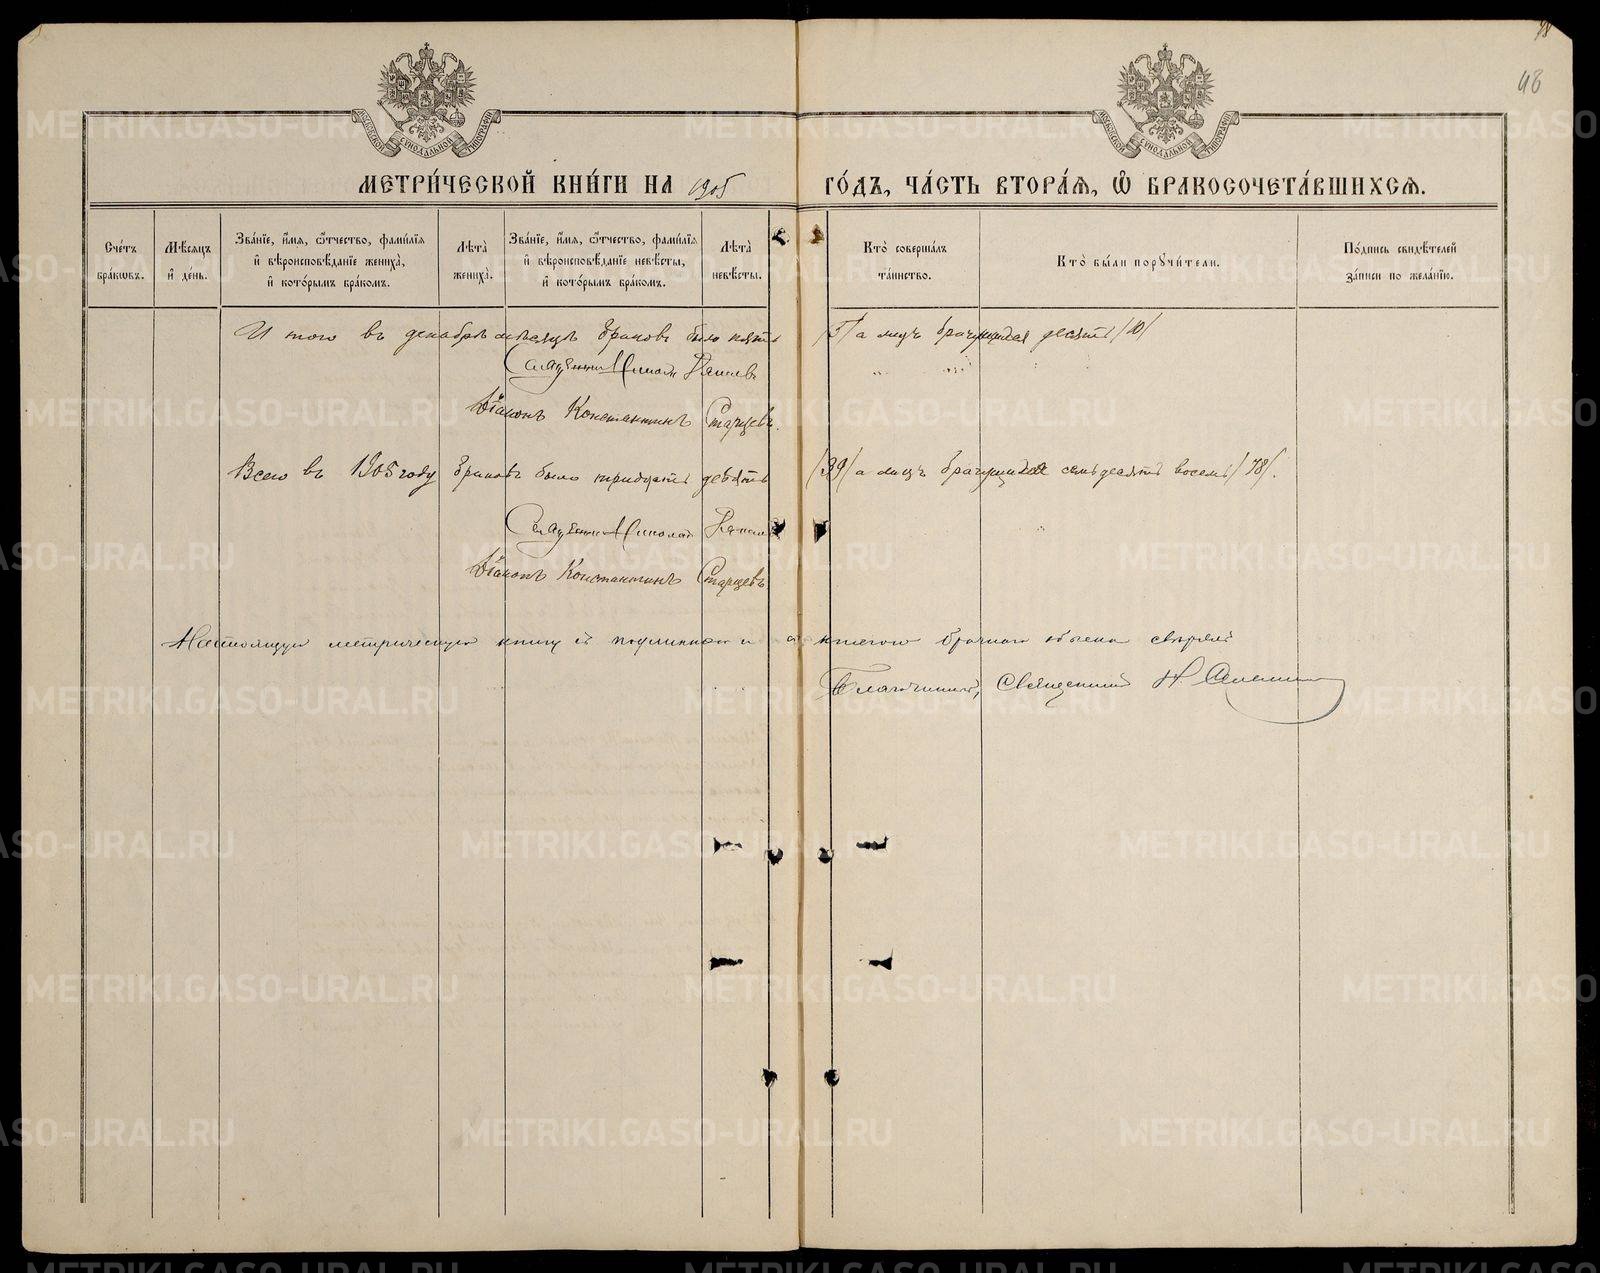 48
МОСКОВСКОЙ СѴНОДАЛЬНОЙ ТИПОГРАФІИ
МОСКОВСКОЙ СѴНОДАЛЬНОЙ ТИПОГРАФІИ
МЕТРИ́ЧЕСКОЙ КНИ́ГИ НА 1905 ГО́ДЪ, ЧА́СТЬ ВТОРА́Ѧ, Ѽ БРАКОСОЧЕТА́ВШИХСѦ.
Сче́тъ бра́кѡвъ.
Мѣ́сѧцъ и҆ де́нь.
Зва́нїе, и҆́мѧ, ѻ҆́тчество, фамі́лїѧ и҆ вѣроисповѣ́данїе жениха̀, и҆ кото́рымъ бра́комъ.
Лѣта̀ жениха̀.
Зва́нїе, и҆́мѧ, ѻ҆́тчество, фамі́лїѧ и҆ вѣроисповѣ́данїе невѣ́сты, и҆ кото́рымъ бра́комъ.
Лѣта̀ невѣ́сты.
Кто̀ соверша́лъ та́инство.
Кто̀ бы́ли порꙋчи́тели.
По́дпись свидѣ́телей за́писи по жела́нїю.
И того въ декабрѣ мѣсяцѣ браковъ было пять /5/ а лицъ брачущихся десять /10/
Священникъ Николай
Діаконъ Константинъ Старцевъ.
Всего въ 1905 году браковъ было тридцать девять /39/ а лицъ брачущихся семьдесятъ восемь /78/.
Священникъ Николай
Діаконъ Константинъ Старцевъ.
Настоящую метрическую книгу съ подлинною и брачного обыска свѣрялъ
Благочинный, священникъ Н.
METRIKI.GASO-URAL.RU